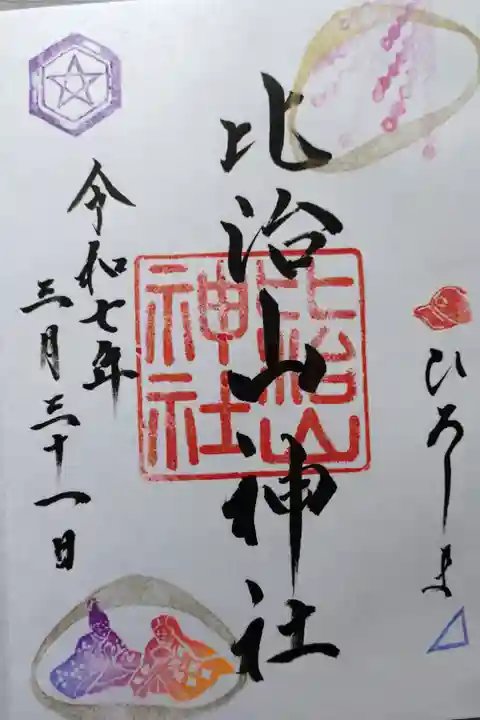 ひろしま
比治山神社
比治山
神社
令和七年
三月三十一日